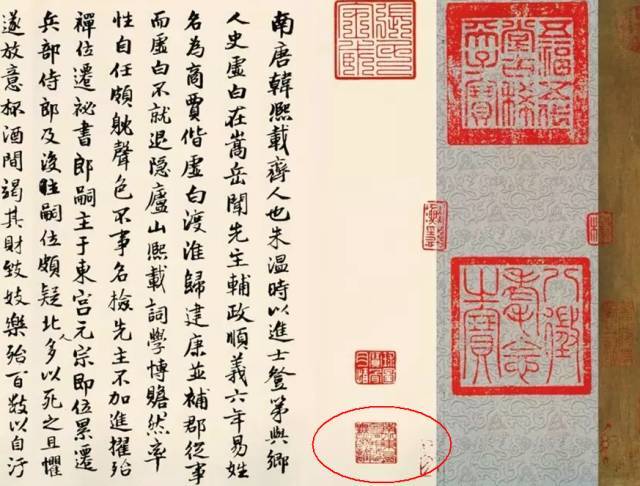 五福五代
堂古稀
天子寶
八徵
耄念
之寶
南唐韓熙載齊人也朱溫時以進士登第與鄉
人史虛白在嵩岳聞先主輔政順義六年易姓
名為商賈偕虛白渡淮歸建康並補郡從事
而虛白不就退隱廬山熙載詞學博贍然率
性自任頗躭聲色不事名檢先主不加進擢殆
禪位遷祕書郎嗣主于東宮元宗即位累遷
兵部侍郎及後主嗣位頗疑北人多以死之且懼
遂放意杯酒間竭其財致妓樂殆百數以自汙